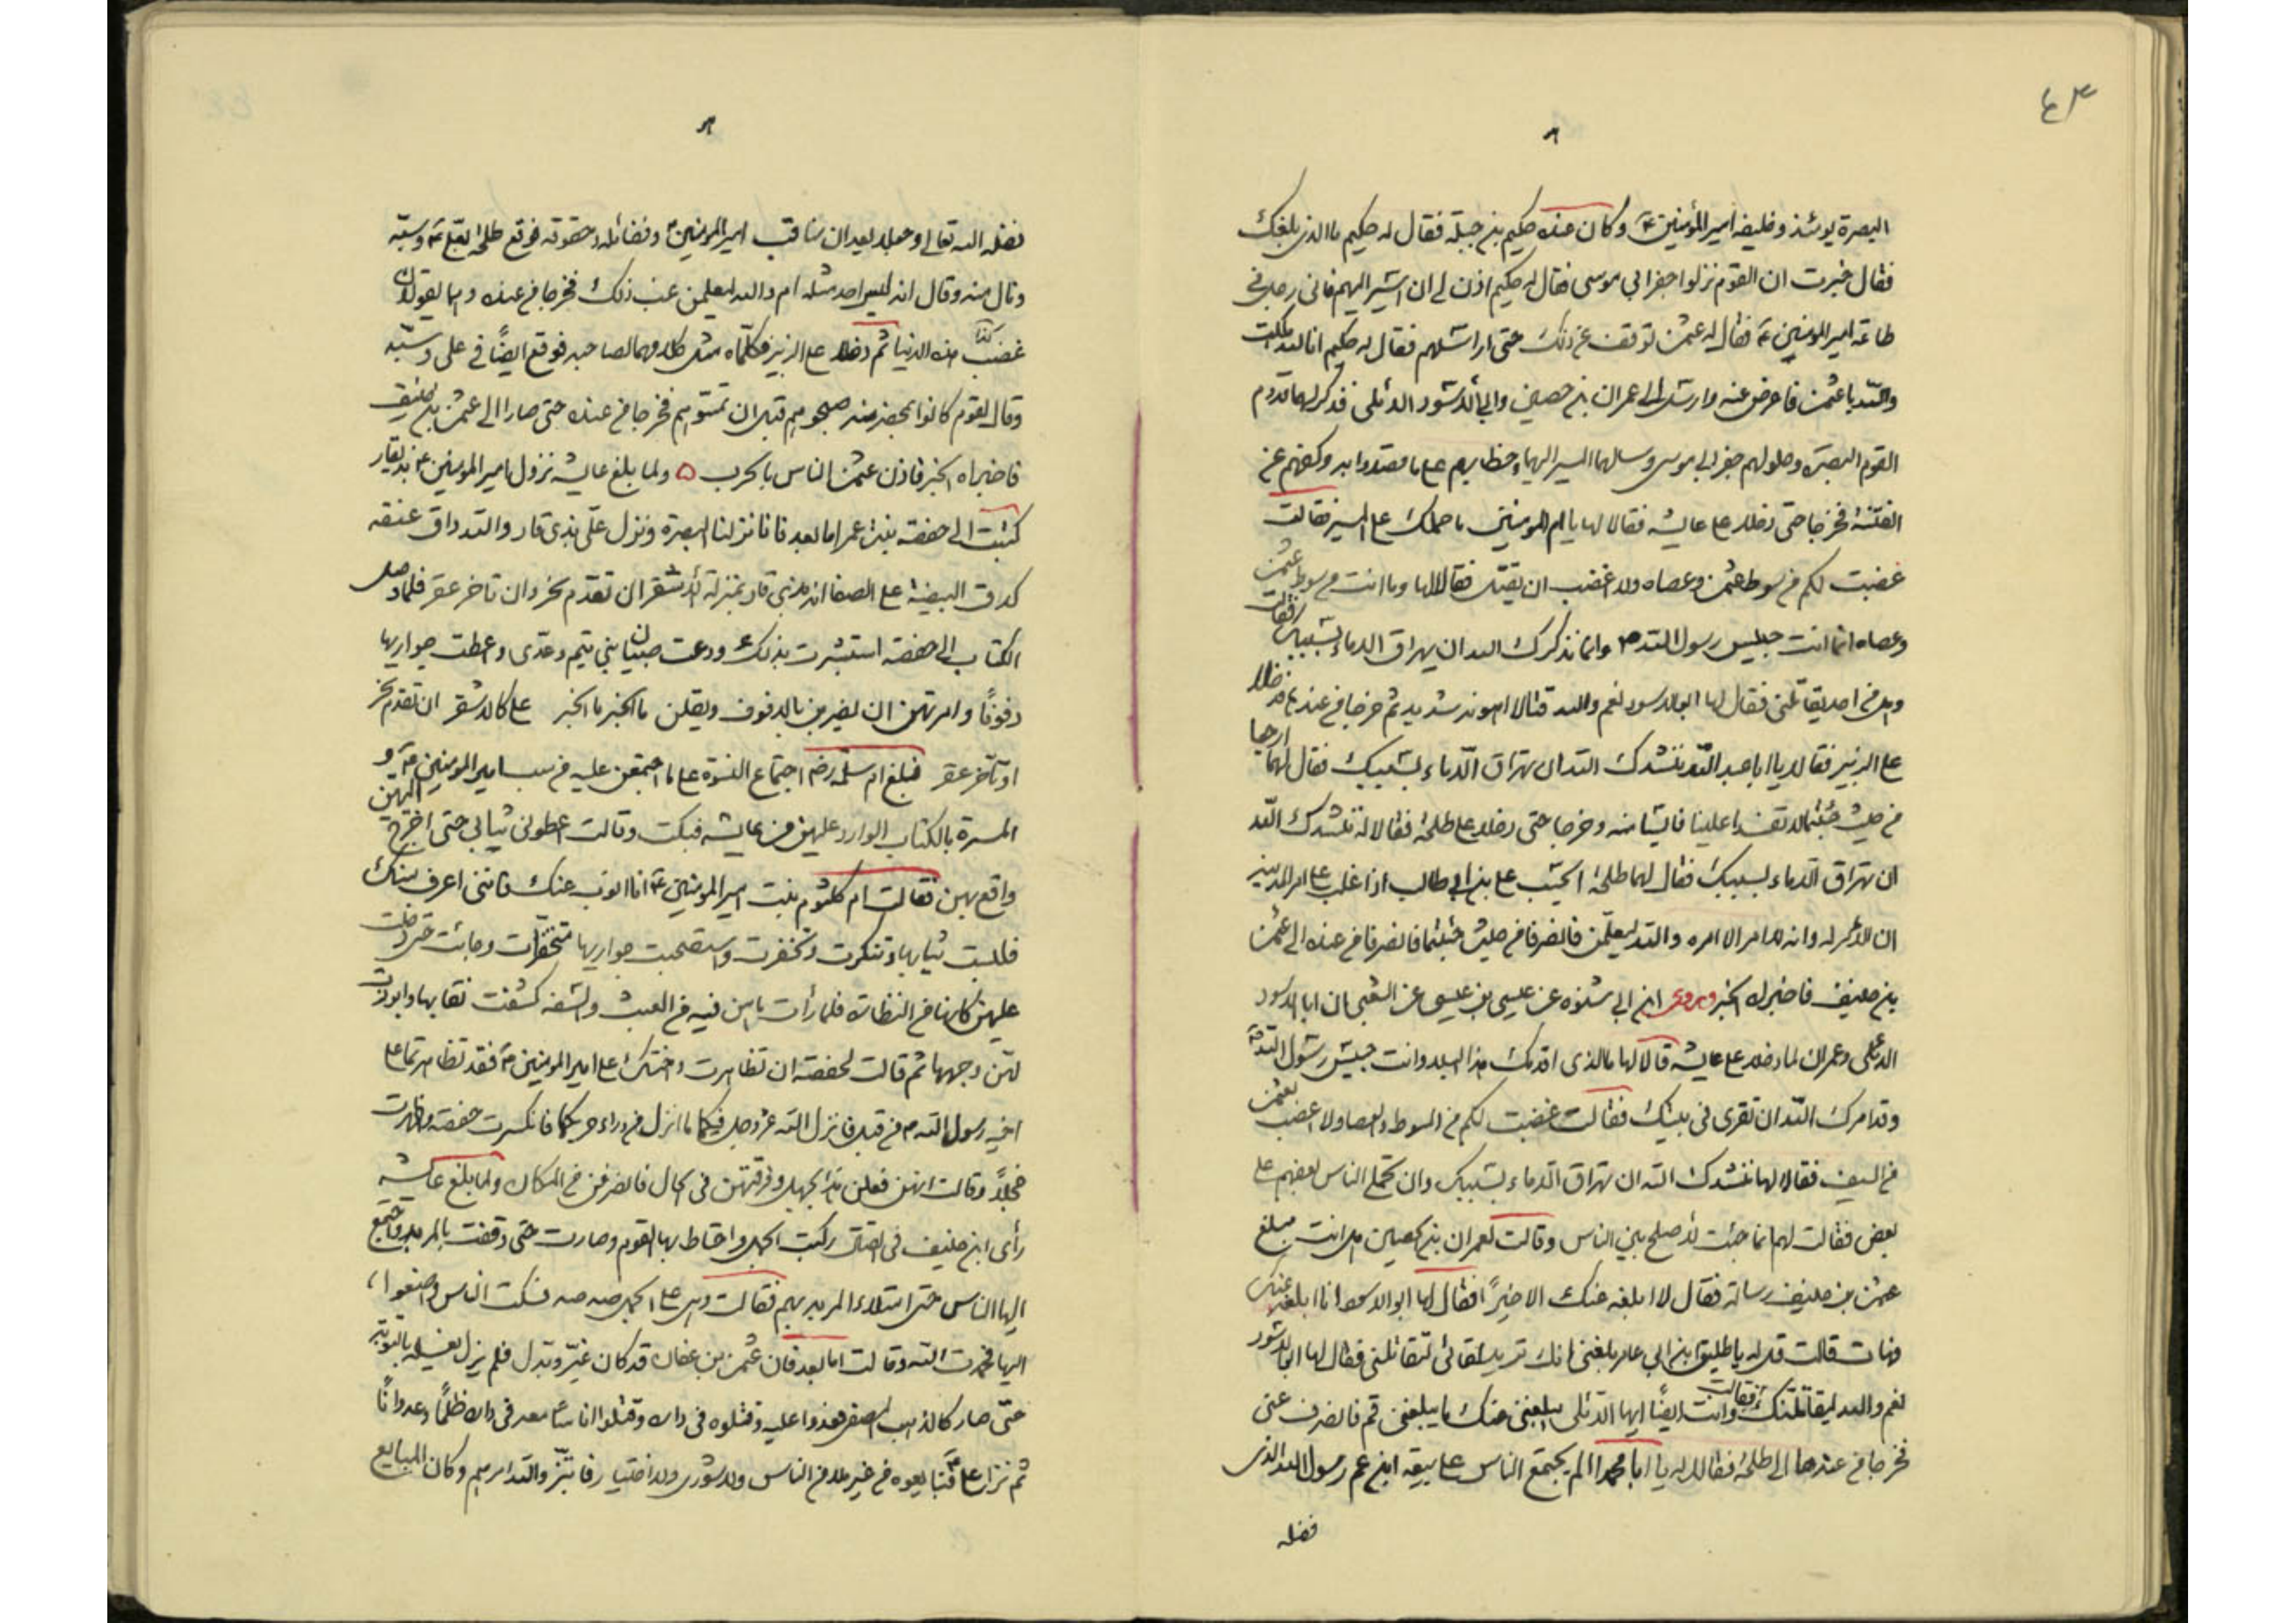 ٤٣
البصرة يومئذ وخليفه امير المؤمنين ع وكان عنده حكيم بن جبلة فقال له حكيم ما الذى بلغك
فقال خبرت ان القوم نزلوا حفر ابي موسى فقال له حكيم ائذن لى ان اسير اليهم فانى رجل فى
طاعة امير المومنين ع فقال له عثمن توقف عن ذلك حتى اراسلهم فقال له حكيم انا لله هلكت
والله يا عثمن فاعرض عنه وارسل الى عمران بن حصين والى ابى الاسود الدئلى فذكر لهما قدوم
القوم البصرة وحلولهم حفر ابى موسى وسالهما المسير اليهم وخطابهم على ما قصدوا به وكفهم عن
الفتنة فخرجا حتى دخلا على عايشه فقالا لها يا ام المومنين ما حملك على المسير فقالت
غضبت لكم من سوط عثمن وعصاه ولا اغضب ان يقتل فقالا لها وما انت من سوط عثمن
وعصاه انما انت حبيس رسول الله ص وانا نذكرك الله ان يهراق الدماء بسببك فقالت
وهل من احد يقاتلنى فقال لها ابو الاسود نعم والله قتالا اهونه شديد ثم خرجا من عندها فدخلا
على الزبير فقالا يا ابا عبد الله ننشدك الله ان تهراق الدماء بسببك فقال لهما ارجعا
من حيث جئتما لا تفسدا علينا فايسا منه وخرجا حتى دخلا على طلحة فقالا له ننشدك الله
ان تهراق الدماء بسببك فقال لهما طلحة ايحسب على بن ابى طالب اذا غلب على امر المدينة
ان الامر له وانه لا امر الا امره والله ليعلمن فانصرفا من حيث جئتما فانصرفا من عنده الى عثمن
بن حنيف فاخبراه الخبر وروى ابن ابى سبره عن عيسى بن عيسى عن الشعبى ان ابا الاسود
الدئلى وعمران لما دخلا على عايشه قالا لها ما الذى اقدمك هذا البلد وانت حبيس رسول الله ص
وقد امرك الله ان تقرى فى بيتك فقالت غضبت لكم من السوط والعصا ولا اغضب لعثمن
من السيف فقالا لها ننشدك الله ان تهراق الدماء بسببك وان تحملى الناس بعضهم على
بعض فقالت لهما انما جئت لاصلح بين الناس وقالت لعمران بن الحصين هل انت مبلغ
عثمن بن حنيف رسالة فقال لا ابلغه عنك الا خيرًا فقال لها ابو الاسود انا ابلغه عنك
فهات قالت قل له يا طليق ابن ابى عامر بلغنى انك تريد لقائى لتقاتلنى فقال لها ابو الاسود
نعم والله ليقاتلنك فقالت وانت ايضًا ايها الدئلى يبلغنى عنك ما يبلغنى قم فانصرف عنى
فخرجا من عندها الى طلحة فقالا له يا ابا محمد الم يجتمع الناس على بيعة ابن عم رسول الله الذى
فضله
فضله الله تعالى وجعلا يعدان مناقب امير المؤمنين ع وفضائله وحقوقه فوقع طلحة بعلى ع وسبه
ونال منه وقال انه ليس احد مثله ام والله ليعلمن غب ذلك فخرجا من عنده وهما يقولان
غضب هذا الدنيا ثم دخلا على الزبير فكلماه مثل كلامهما لصاحبه فوقع ايضًا فى على وسبه
وقال لقوم كانوا بمحضر منه صبحوهم قبل ان تمسوهم فخرجا من عنده حتى صارا الى عثمن بن حنيف
فاخبراه الخبر فاذن عثمن الناس بالحرب ٥ ولما بلغ عايشه نزول امير المومنين ع بذيقار
كتبت الى حفصة بنت عمر اما بعد فانا نزلنا البصرة ونزل على بذى قار والله داق عنقه
كدق البيضة على الصفا انه بذى قار بمنزلة الاشقر ان تقدم نحر وان تاخر عقر فلما وصل
الكتاب الى حفصة استبشرت بذلك ودعت صبيان بنى تيم وعدى واعطت جواريها
دفوفًا وامرتهن ان يضربن بالدفوف ويقلن ما الخبر ما الخبر على كالاشقر ان تقدم نحر
او تاخر عقر فبلغ ام سلمة رضـ اجتماع النسوة على ما اجتمعن عليه من سب امير المومنين ع و
المسرة بالكتاب الوارد عليهن من عايشه فبكت وقالت اعطونى ثيابى حتى اخرج اليهن
واقع بهن فقالت ام كلثوم بنت امير المومنين ع انا انوب عنك فاننى اعرف منك
فلبست ثيابها وتنكرت وتخفرت واستصحبت جواريها متخفرات وجائت حتى دخلت
عليهن كانها من النظارة فلما رأت ما هن فيه من العبث والسفه كشفت نقابها وابرزت
لهن وجهها ثم قالت لحفصة ان تظاهرت واختك على امير المومنين ع فقد تظاهرتما على
اخيه رسول الله ص من قبل فانزل الله عز وجل فيكما ما انزل من وراء حربكما فانكسرت حفصة واظهرت
خجلًا وقالت انهن فعلن هذا بجهل وفرقتهن فى الحال فانصرفن من المكان ولما بلغ عائشه
رأى ابن حنيف فى القتال ركبت الجمل واحاط بها القوم وصارت حتى وقفت بالمربد واجتمع
اليها الناس حتى امتلاء المربد بهم فقالت وهى على الجمل صه صه فسكت الناس واصغوا
اليها فحمدت الله وقالت اما بعد فان عثمن بن عفان قد كان غير وبدل فلم يزل يغسله بالتوبة
حتى صار كالذهب المصفى فعدوا عليه وقتلوه فى داره وقتلوا اناسًا معه فى داره ظلمًا وعدوانًا
ثم نزا على ع فبايعوه من غير ملاء من الناس ولا شورى ولا اختيار فابتز والله امرهم وكان المبايع